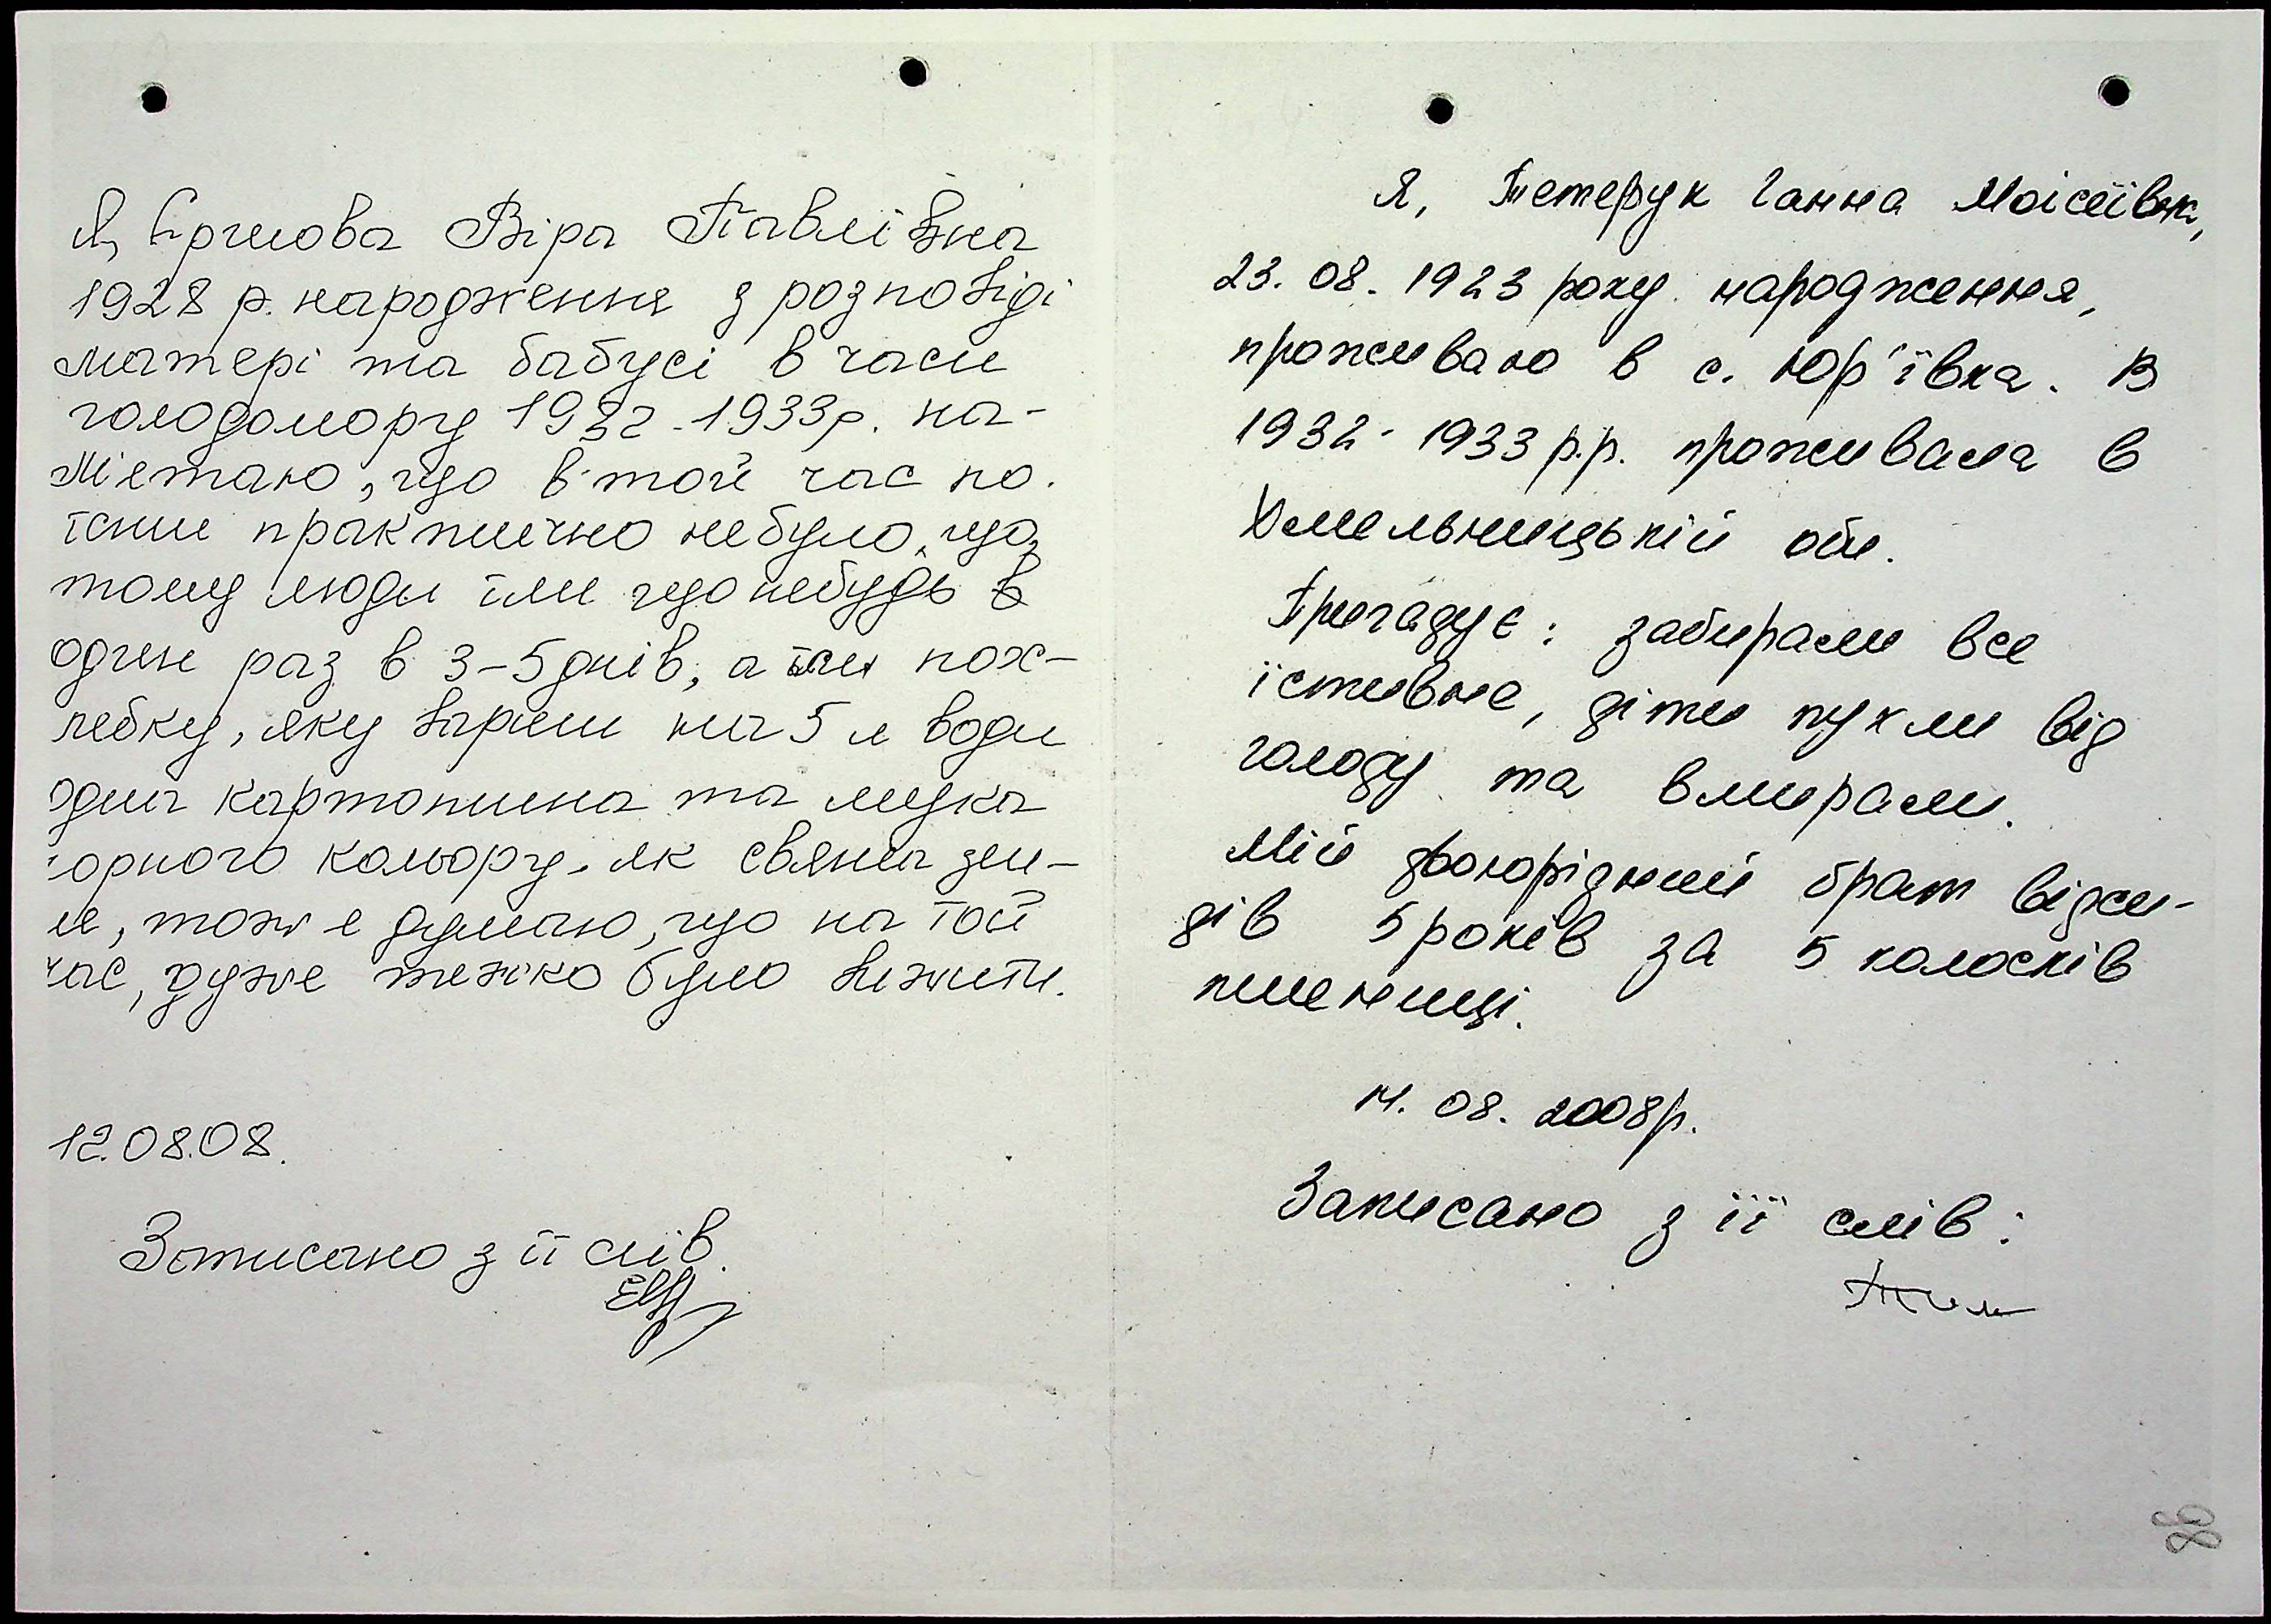 Я, Віра Павлівна
1928 р. народження з розповіді
матері та бабусі в часи
голодомору 1932-1933р. па-
м'ятаю, що в той час по
їсти практично небуло, що,
тому люди їли що небудь в
один раз в 3-5 днів, а їли пох-
лебку, яку варили на 5 л води
одна картоплина та мука
чорного кольору, як свята зем-
ле, тож я думаю, що на той
час, дуже тяжко було вижити.
12.08.08.
Записано з її слів.
Я, Тетерук Ганна Моісеївна,
23.08.1923 року народження,
проживаю в с. Юр'ївка. В
1932-1933 р.р. проживала в
Хмельницькій обл.
Пригадує: забирали все
їстивне, діти пухли від
голоду та вмирали.
Мій двоюрідний брат відси-
дів 5 років за 5 колосків
пшениці.
14.08.2008р.
Записано з її слів: